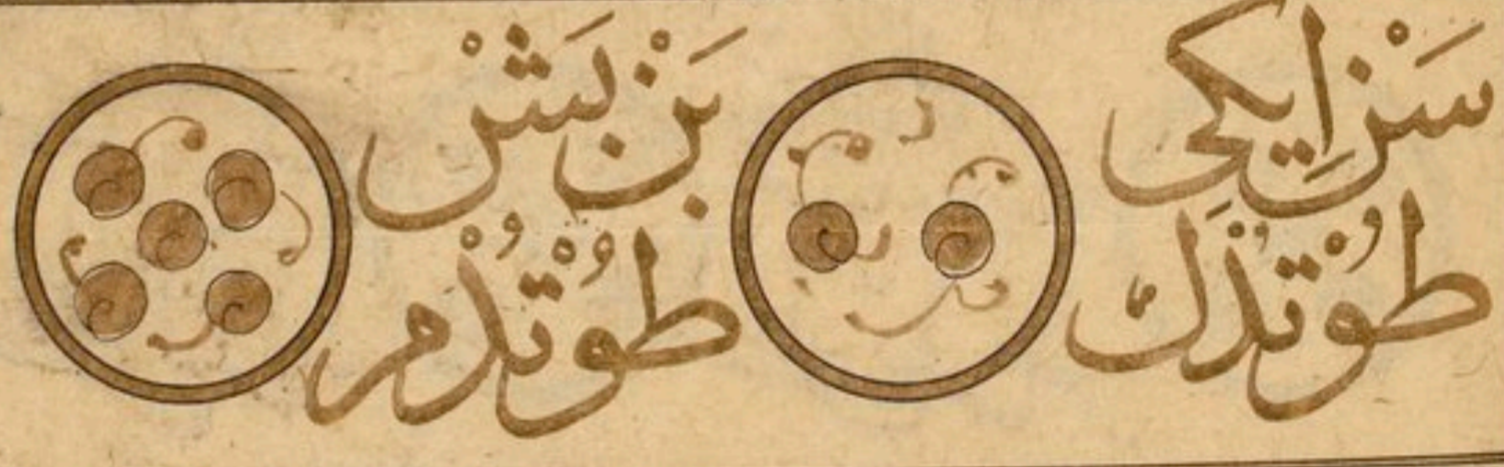 سَنْ اِيكى
طُوتْدُڭ
بَنْ بَشْ
طُوتْدُمْ